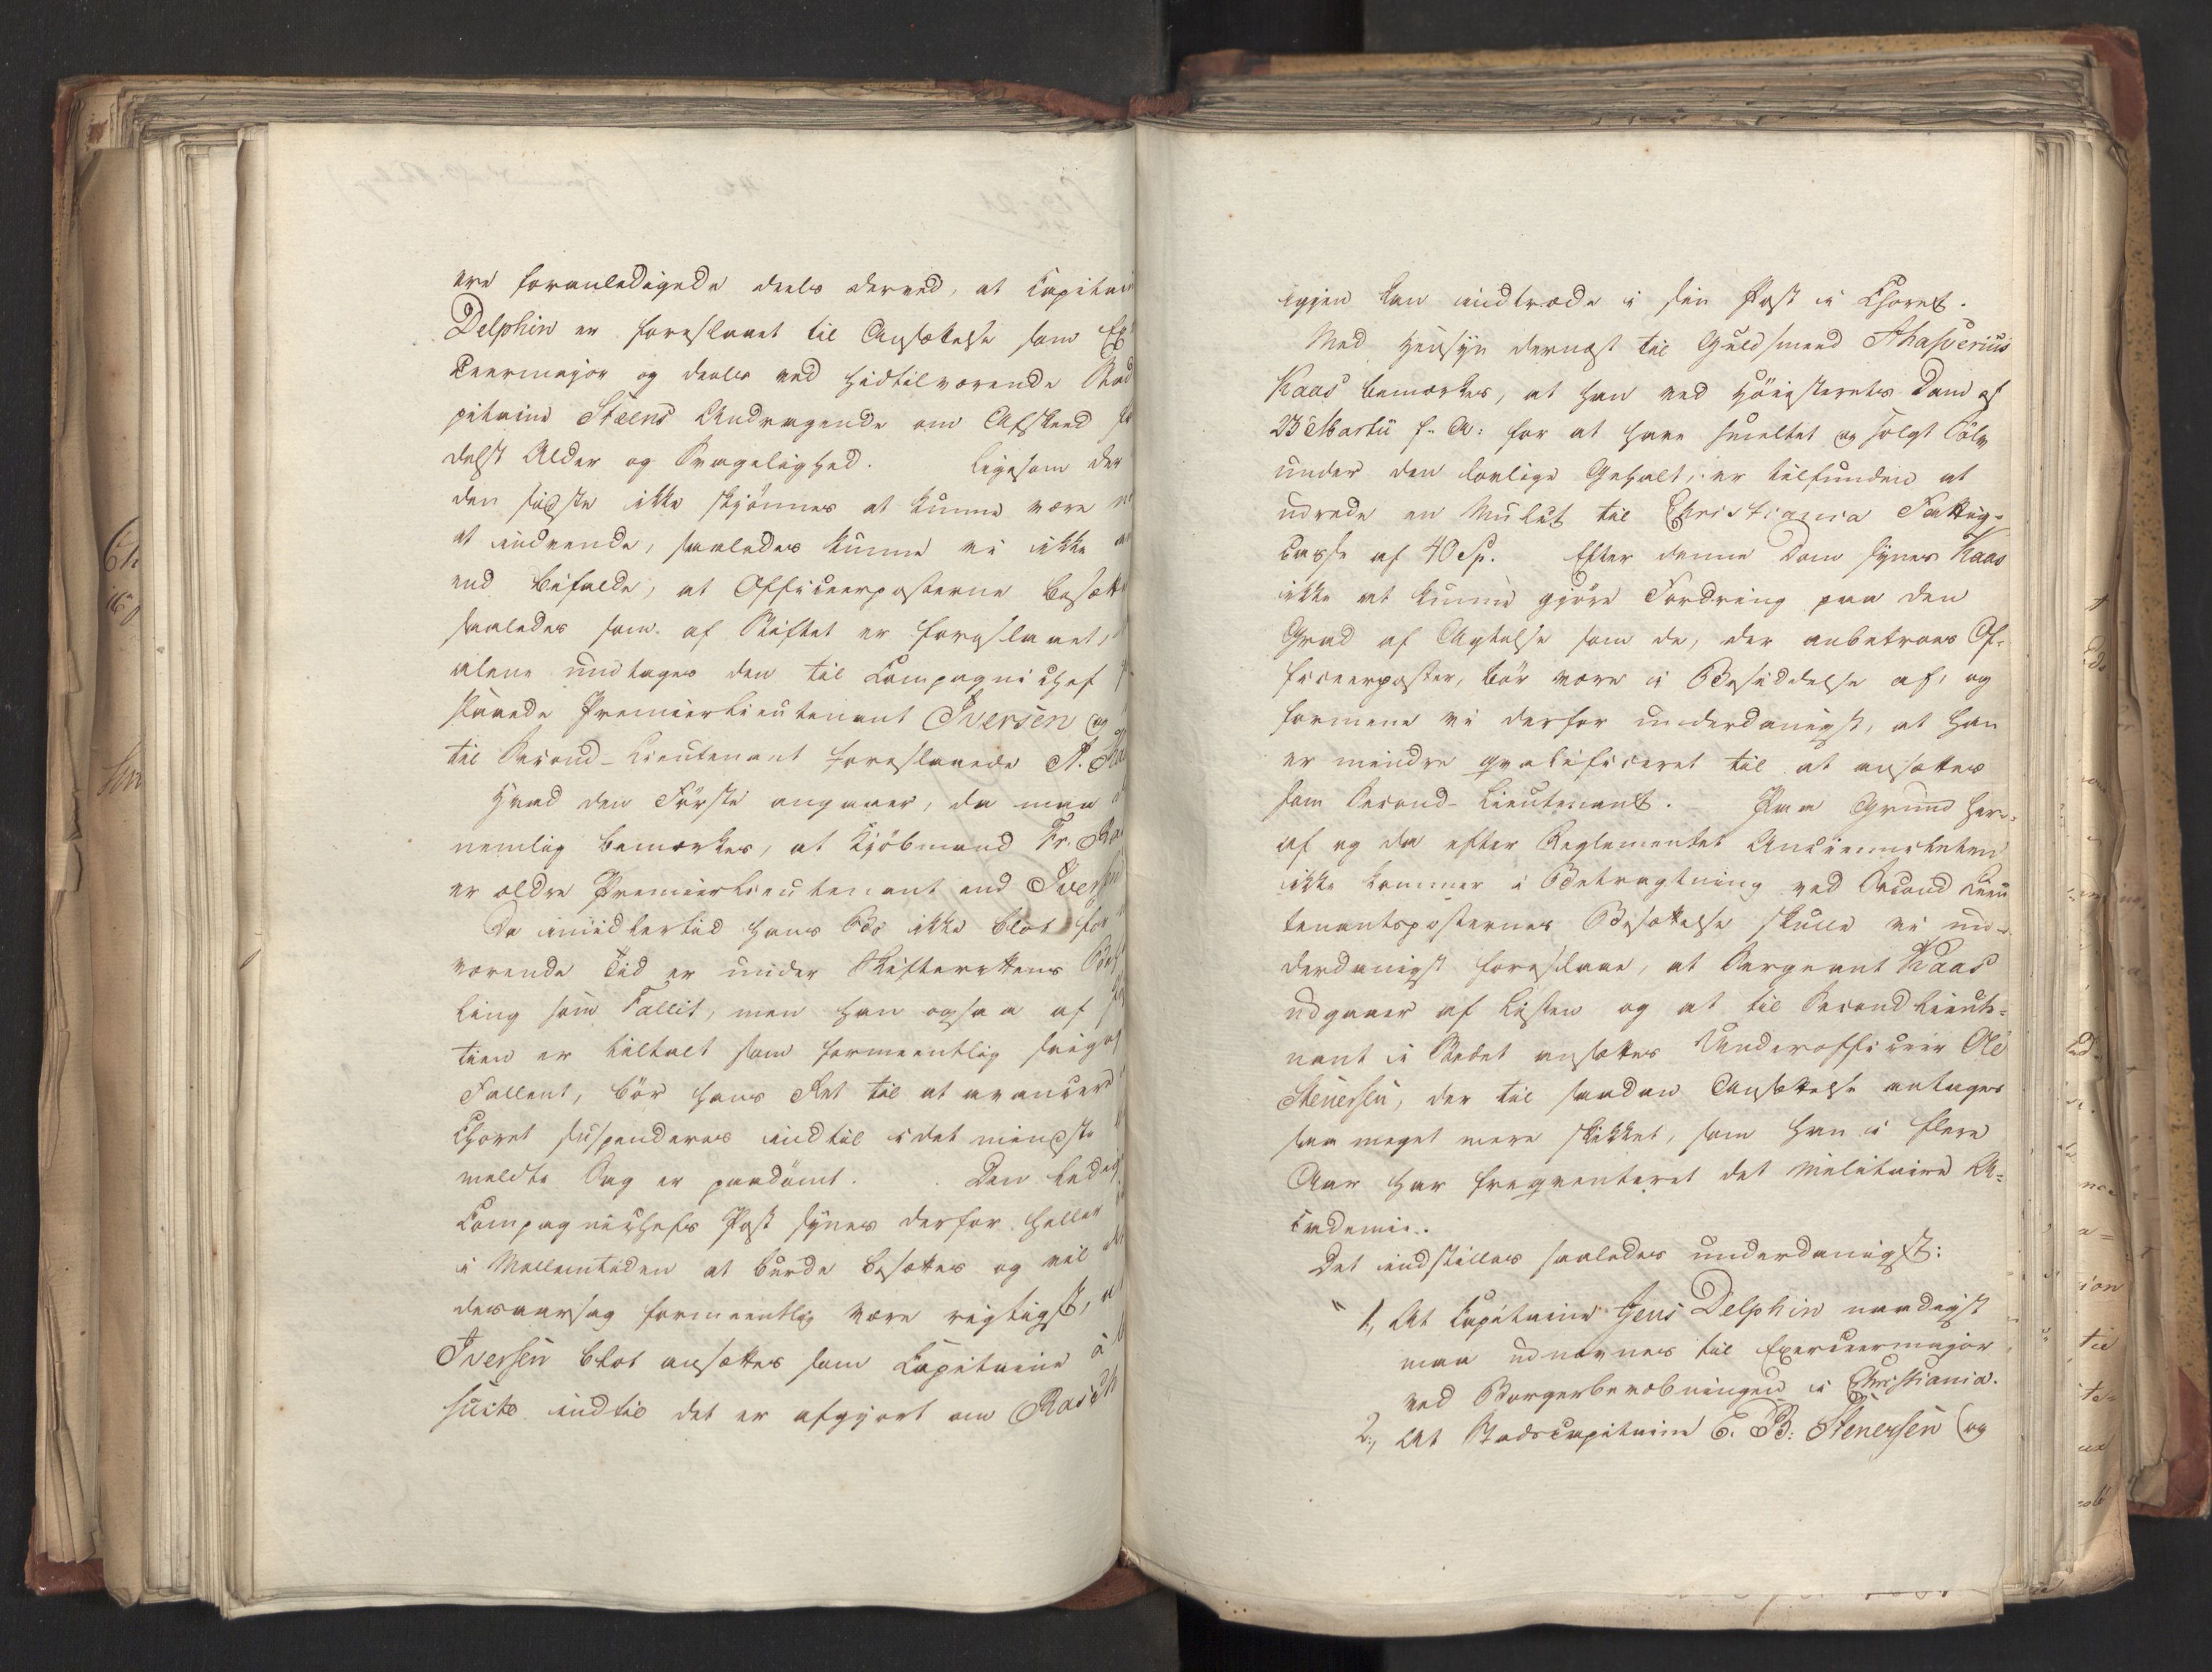 ere foranledigede deels derved, at Capitain
Delphin er foreslaaet til Ansættelse som Ex
ceermajor og deels ved hidtilværende Stad
pitaine Steens Andragende om Afskeed
delst Alder og Svagelighed. Ligesom der
den sidste ikke skjönnes at kunne være
at indvende, saaledes kunne vi ikke
end bifalde, at Officeerposterne besætt
saaledes som af Stiftet er foreslaaet,
alene undtages den til Compagnichef
slaaede Premierlieutenant Iversen og
til Second-Lieutenant foreslaaede A. Ka
Hvad den Første angaaer, da maa
nemlig bemærkes, at Kjöbmand Fr. Ra
er ældre Premierlieutenant end Iversen
Da imidlertid hans Bo ikke blot for
værende Tid er under Skifterettens Beh
ling som Fallit, men han ogsaa af
tien er tiltalt som formeentlig svig
Fallent, bör hans Ret til at avancere
Choret suspenderes indtil i det mindste
meldte Sag er paadömt. Den led
Compagniechefs Post synes derfor heller
i Mellemtiden at burde besættes og vil
desaarsag formeentlig være rigtigst,
Iversen blot ansættes som Capitaine à l
suite indtil det er afgjort om Rasch
igjen kan indtræde i sin Post i Choret.
Med Hensyn dernæst til Guldsmed Ahasverius
Kaas bemærkes, at han ved Höiesterets Dom af
23 Martii f. A: for at have smeltet og solgt Sölv
under den lovlige Gehalt, er tilfunden at
udrede en Mulct til Christiania Fattig-
casse af 40 Sp. Efter denne Dom synes Kaas
ikke at kunne gjöre Fordring paa den
Grad af Agtelse som de, der anbetroes Of-
ficeerposter, bör være i Besiddelse af, og
formene vi derfor underdanigst, at han
er mindre qvalificeret til at ansættes
som Second-Lieutenant. - Paa Grund her-
af og da efter Reglementet Ancienniteten
ikke kommer i Betragtning ved Second Lieu
tenantsposternes Besættelse skulle vi un-
derdanigst foreslaae, at Sergeant Kaas
udgaaer af Listen og at til Second Lieute-
nant i Stedet ansættes Underofficeer Ole
Stenersen, der til saadan Ansættelse antages
saa meget mere skikket, som han i flere
Aar har freqventeret det militaire A-
cademie.
Det indstilles saaledes underdanigst:
" 1, At Capitaine Jens Delphin naadigst
maa udnævnes til Exerceermajor
ved Borgerbevæbningen i Christiania.
2., At Stadscapitaine E. B: Stenersen og